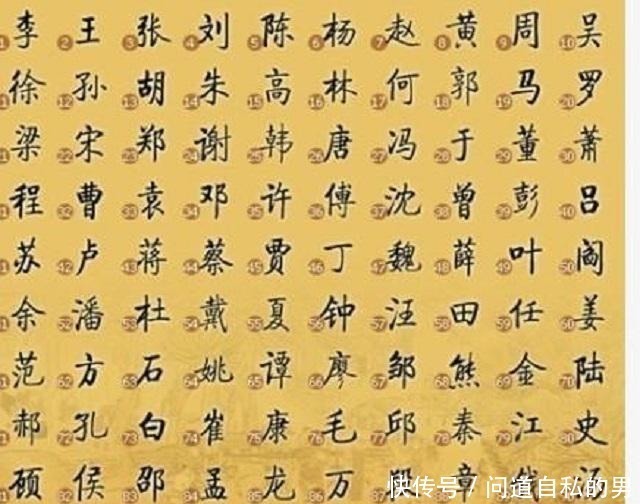 1李 2王 3张 4刘 5陈 6杨 7赵 8黄 9周 10吴
徐 12孙 13胡 14朱 15高 16林 17何 18郭 19马 20罗
梁 22宋 23郑 24谢 25韩 26唐 27冯 28于 29董 30萧
程 32曹 33袁 34邓 35许 36傅 37沈 38曾 39彭 40吕
苏 42卢 43蒋 44蔡 45贾 46丁 47魏 48薛 49叶 50阎
余 52潘 53杜 54戴 55夏 56钟 57汪 58田 59任 60姜
范 62方 63石 64姚 65谭 66廖 67邹 68熊 69金 70陆
郝 72孔 73白 74崔 75康 76毛 77邱 78秦 79江 80史
顾 82侯 83邵 84孟 85龙 86万
快传号 / 问道自私的男